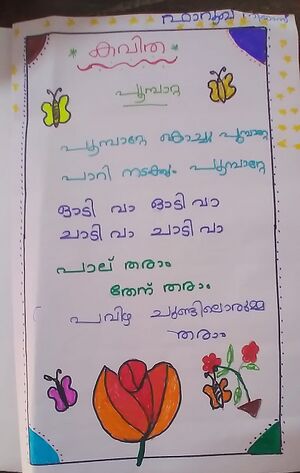 ഫാറൂഖ്
* കവിത *
പൂമ്പാറ്റ
പൂമ്പാറ്റേ കൊച്ചു പൂമ്പാറ്റേ
പാറി നടക്കും പൂമ്പാറ്റേ
ഓടി വാ ഓടി വാ
ചാടി വാ ചാടി വാ
പാല് തരാം
തേന് തരാം
പവിഴ ചുണ്ടിലൊരുമ്മ
തരാം